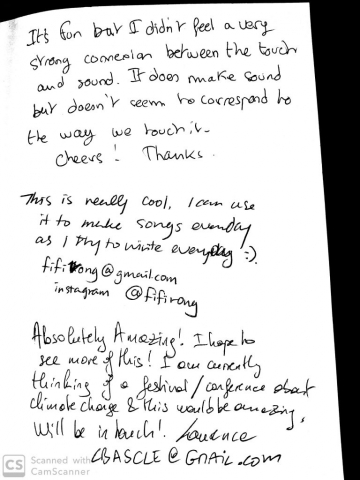 It's fun but I didn't feel a very
strong connection between the touch
and sound. It does make sound
but doesn't seem to correspond to
the way we touch it.
Cheers! Thanks.
This is really cool, I can use
it to make songs everyday
as I try to write everyday :).
fifirong@gmail.com
instagram @fifirong
Absolutely Amazing! I hope to
see more of this! I am currently
thinking of a festival/conference about
climate change & this would be amazing.
Will be in touch! Laurence
LBASCLE@GMAIL.com
CS Scanned with
CamScanner